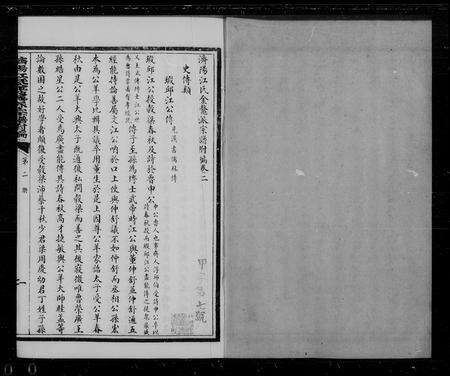 濟陽江氏金鰲派宗譜附編卷二
史傳類
瑕邱江公傳 見漢書儒林傳
瑕邱江公授穀梁春秋及詩於魯申公
傳子至孫為博士武帝時江公與董仲舒並仲舒通五
經能持論善屬文江公吶於口上使與仲舒議不如仲舒而丞相公孫宏
本為公羊學比輯其議卒用董生於是上因尊公羊家詔太子受公羊春
秋由是公羊大興太子既通復私問穀梁而善之其後寖微唯魯榮廣王
孫皓星公二人受焉廣盡能傳其詩春秋高才捷敏與公羊大師眭孟等
論數困之故好學者頗復受穀梁沛蔡千秋少君梁周慶幼君丁姓子孫
第二册